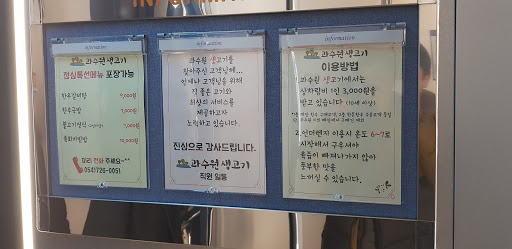 INFORMATION
information
과수원 생고기
점심특선메뉴 포장가능
한우갈비탕 9,000원
한우국밥 7,000원
불고기정식 9,000원
육회비빔밥 10,000원
미리 전화 주세요~^^
(054)726-0051
information
과수원 생고기를
찾아주신 고객님께...
언제나 고객님을 위해
질 좋은 고기와
최상의 서비스를
제공하고자
노력하고 있습니다.
진심으로 감사드립니다.
과수원 생고기
직원 일동
information
과수원 생고기
이용방법
과수원 생고기에서는
상차림비 1인 3,000원을
받고 있습니다 (10세 이상)
2. 인더렌지 이용시 온도 6~7로
시작해서 구우셔야
육즙이 빠져나가지 않아
풍부한 맛을
느끼실 수 있습니다.